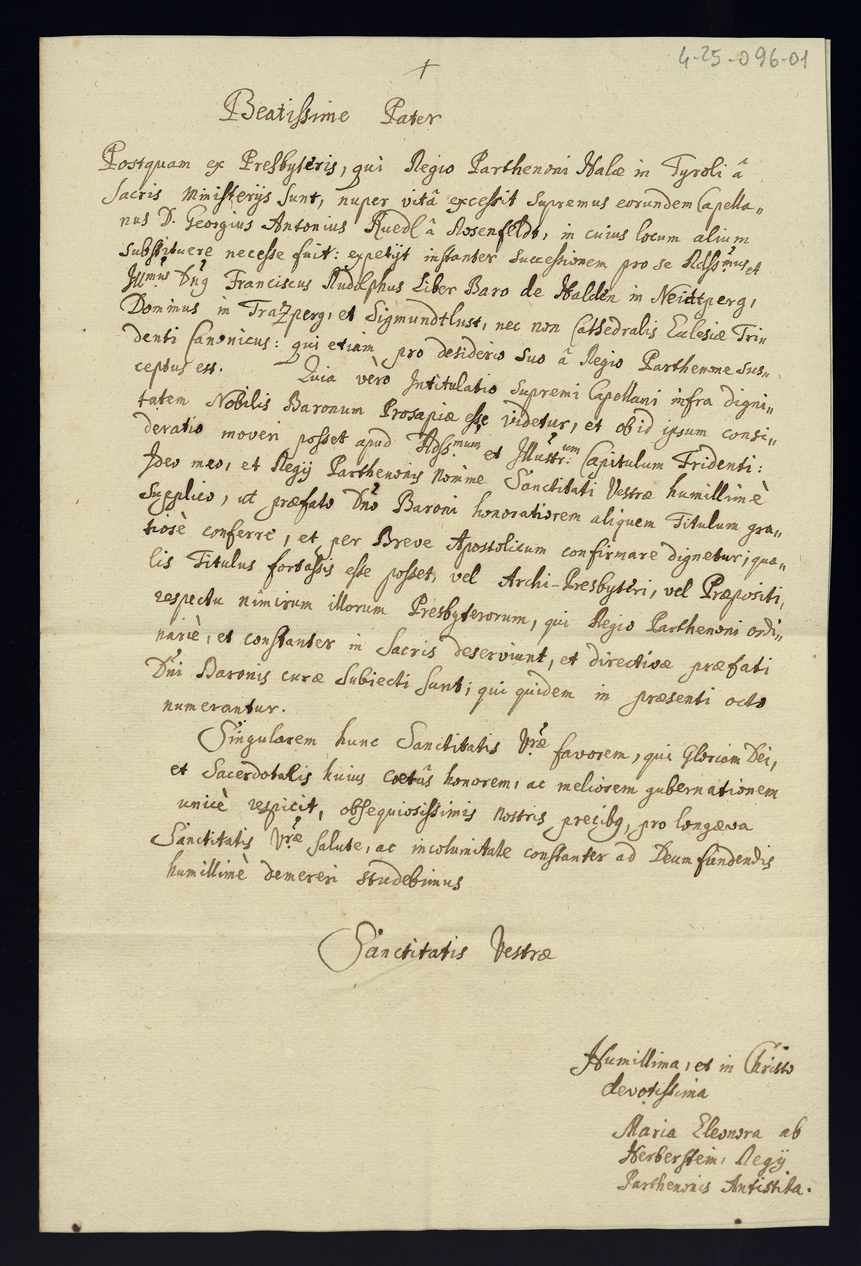 4-25-096-01
+
Beatissime Pater
Postquam ex Presbyteris, qui Regio Parthenoni Halæ in Tyroli â
Sacris Ministerijs sunt, nuper vitâ excessit supremus eorundem Capella„
nus D. Georgius Antonius Ruedl â Rosenfeldt, in cuius locum alium
substituere necesse fuit: expetijt instanter successionem pro se Rdss:mus et
Ill:mus Dn͂g Franciscus Rudolphus Liber Baro de Halden in Neidtperg,
Dominus in Trazperg, et Sigmundtlust, nec non Cathedralis Ecclesiæ Tri„
denti Canonicus: qui etiam pro desiderio suo â Regio Parthenone sus„
ceptus est. Quia vèro Intitulatio supremi Capellani infra digni„
tatem Nobilis Baronum Prosapiæ esse videtur, et ob id ipsum consi„
deratio moveri posset apud Rdss:mum et Illustr:um Capitulum Tridenti:
Ideo meo, et Regij Parthenonis nomine Sanctitati Vestræ humillimè
supplico, ut præfato Dn͂o Baroni honoratiorem aliquem Titulum gra„
tiosè conferre, et per Breve Apostolicum confirmare dignetur; qua„
lis Titulus fortassis esse posset, vel Archi-Presbyteri, vel Præpositi,
respectu nimirum illorum Presbyterorum, qui Regio Parthenoni ordi„
nariè, et constanter in Sacris deserviunt, et directivæ præfati
Dn͂i Baronis curæ subiecti sunt; qui quidem in præsenti octo
numerantur.
Singularem hunc Sanctitatis Vr͂æ favorem, qui Gloriam Dei,
et Sacerdotalis huius coetûs honorem, ac meliorem gubernationem
unicè respicit, obsequiosissimis nostris precibg, pro longæva
Sanctitatis Vr͂æ salute, ac incolumitate constanter ad Deum fundendis
humillimè demereri studebimus
Sanctitatis Vestræ
Humillima, et in Christo
devotissima
Maria Eleonora ab
Herberstein, Regij
Parthenonis Antistita.